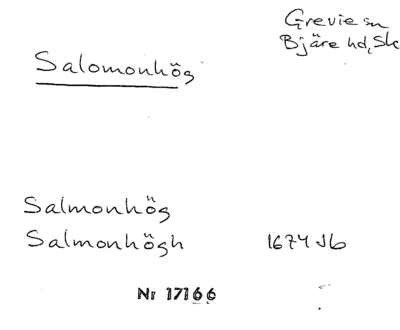 Grevie sn
Bjäre hd, Sk
Salomonhög
Salmonhög
Salmonhögh 1674 Jb
Nr 17166